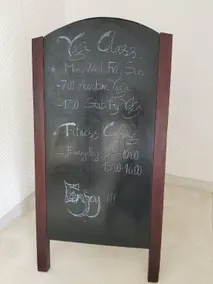 Yoga Class
* Mon, Wed, Fri, Sun
-7.00 Yoga
-17.00 Yoga
* Fitness
- Everyday -10:00
15:00-16:00
Enjoy !!!